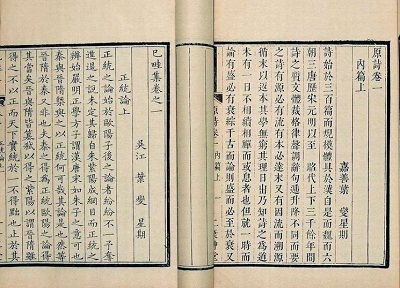 原詩卷一
內篇上
嘉善葉 燮星期
詩始於三百篇而規模體具於漢自是而魏而六
朝三唐歷宋元明以至 昭代上下三千餘年間
詩之質文體裁格律聲調辭句遞升降不同而要
之詩有源必有流有本必達末又有因流而溯源
循末以返本其學無窮其理日出乃知詩之為道
未有一日不相續相禪而或息者也但就一時而
論有盛必有衰綜千古而論則盛而必至於衰又
原詩 卷一 內篇上
已畦集卷之一
正統論上
吳江 葉 燮 星期
正統之論始於歐陽子後之論者紛紛不一予奪
進退之說未定其歸自朱紫陽成綱目而正統之
辨始嚴明正學方子謂漢唐宋如朱子之意可也
秦與晉隋槩與之以正統何可哉其論是也然等
晉隋於秦又非也夫秦之得為正統歐陽之論得
其當矣晉與隋皆篡弒以得之紫陽以謂晉隋雖
得之不以正而天下實統於一不得黜也止於其